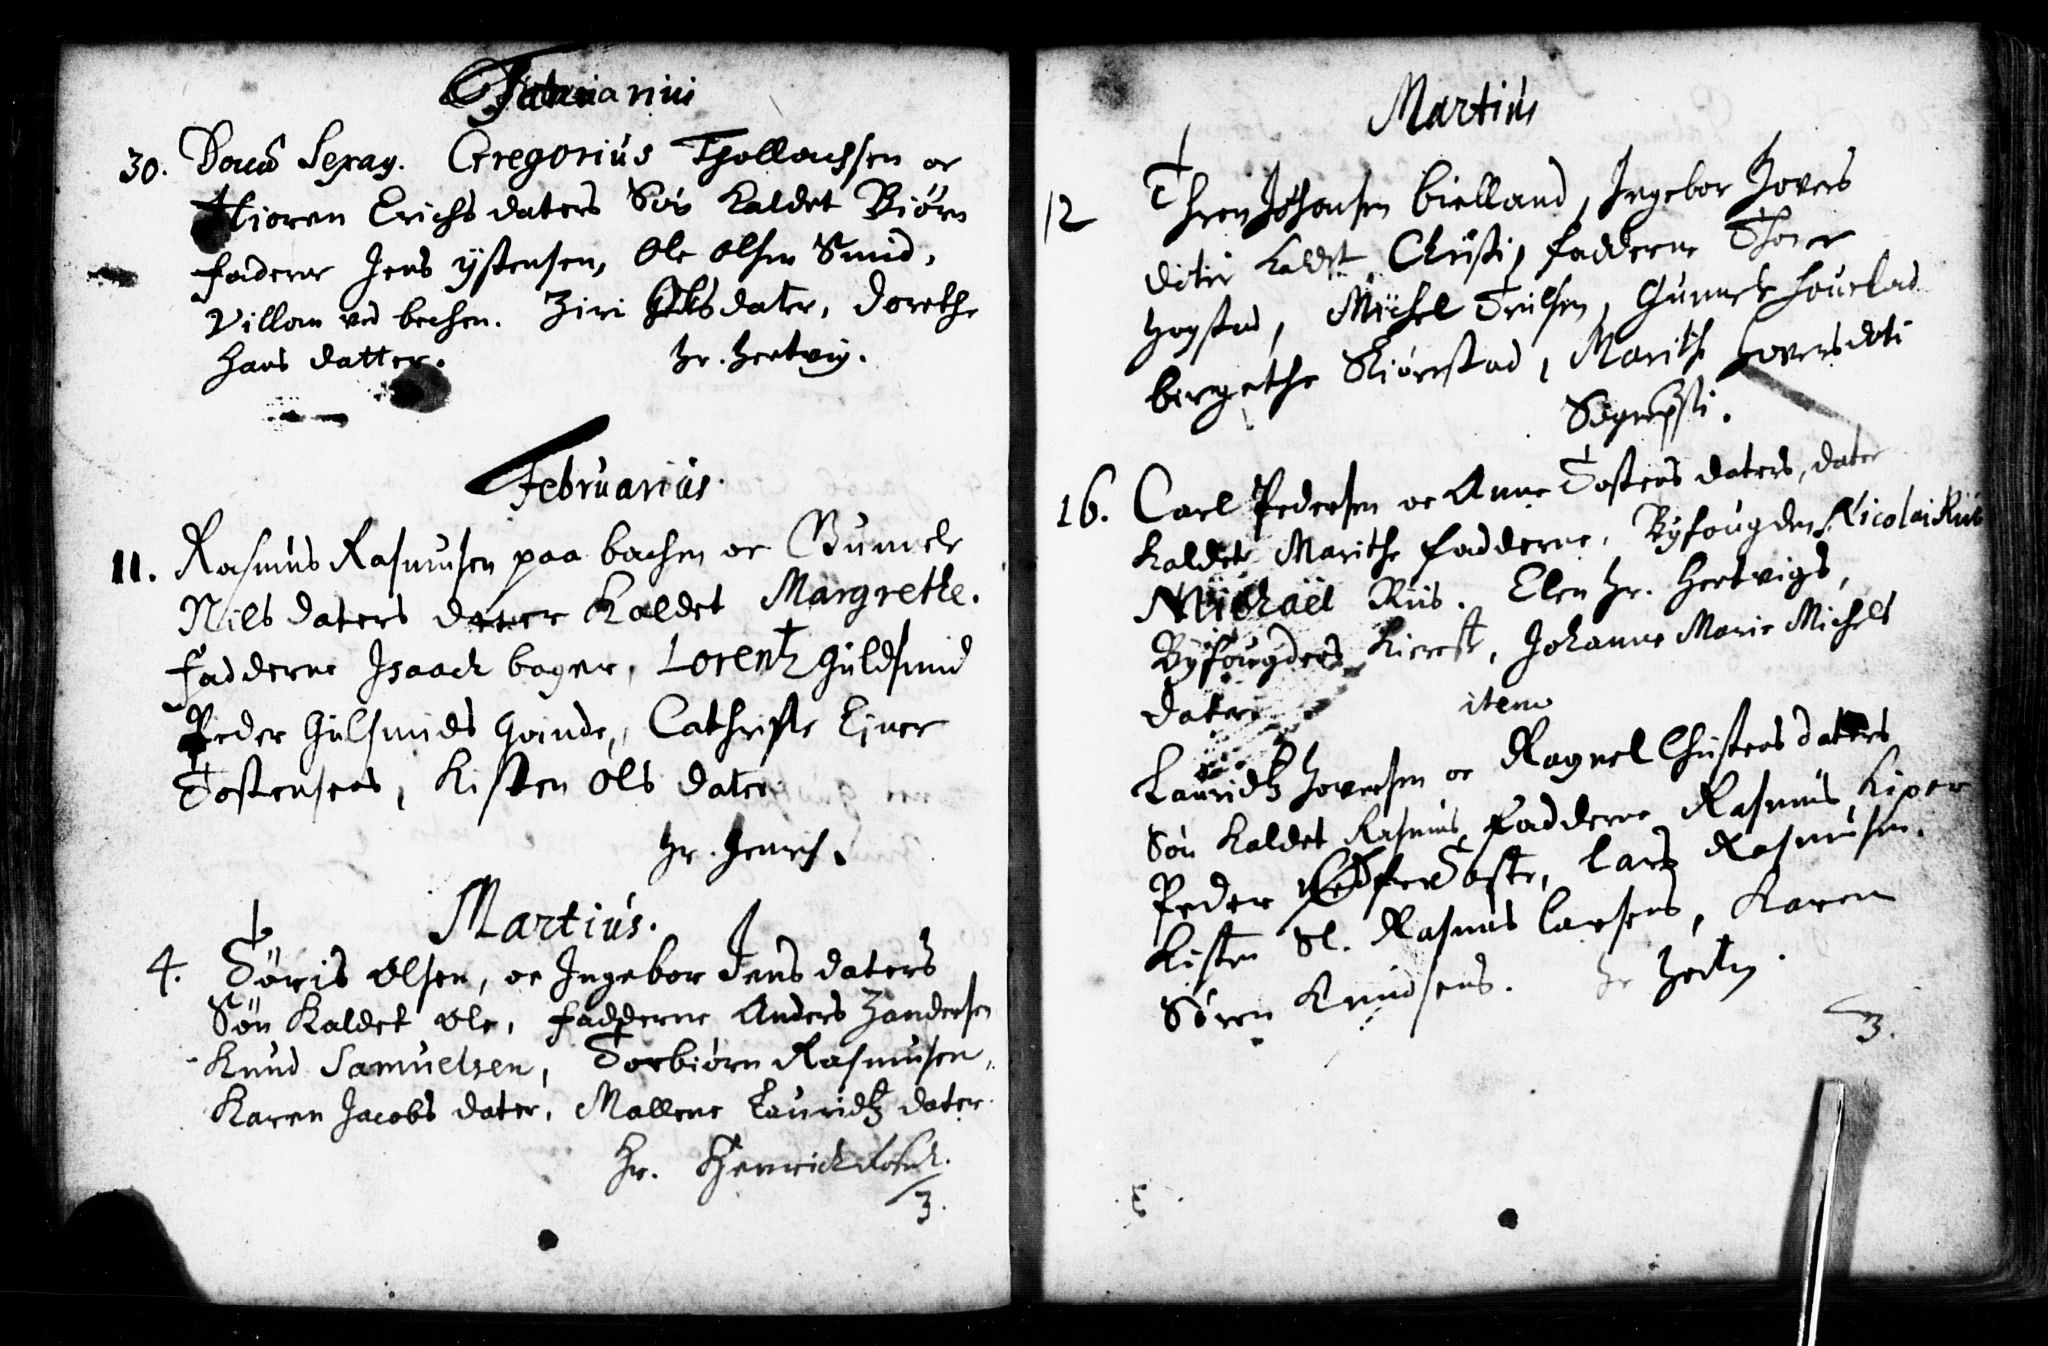 Januarius
30. Domi Sexag. Gregorius Thollachsen oc
Erichs daters Søn kaldet Biørn
faderne Jens ystensen, Ole Olsen Smid,
Villom ved bechen. Ziri dater, Dorethe
Hans datter. Hr. Hertvig.
Februarius
11. Rasmus Rasmusen paa bachen oc Gunnele
Nils daters dater kaldet Margrethe.
fadderne Isaach bager, Lorentz Guldsmid
Peder Gulsmids Qvinde, Cathrine Einer
Tostensens, Kisten Ols dater
Hr. Henrich.
Martius.
4. Tøris Olsen, oc Ingebor Jens daters
Søn kaldet Ole, fadderne Anders Zandersen
Knud Samuelsen, Torbiørn Rasmusen,
Karen Jacobs dater, Mallene Lauridtz dater.
Hr. Henrich
3.
Martius
12 Johansen bielland, Ingebor Jovers
kaldet Christi, fadderne Thorer
Hogstad, Michel Trulsen, Gunnele
bergethe Skiørestad, Marithe Joversdoti
16. Carl Pedersen oc Anne Tostens daters, dater
kaldet Marithe fadderne, Byfougden Nicolai Riis
Michaël Riis. Elen Hr. Hertvigs,
Byfougdens Kierste, Johanne Marie Michels
dater.
item
Lauridtz Joversen oc Ragnel Christens daters
Søn kaldet Rasmus, fadderne Rasmus Kiper
Peder Toste, Lars Rasmusen.
Kisten Sl. Rasmus Larsens, Karen
Søren Knudsens. Hr Hertvig.
3.